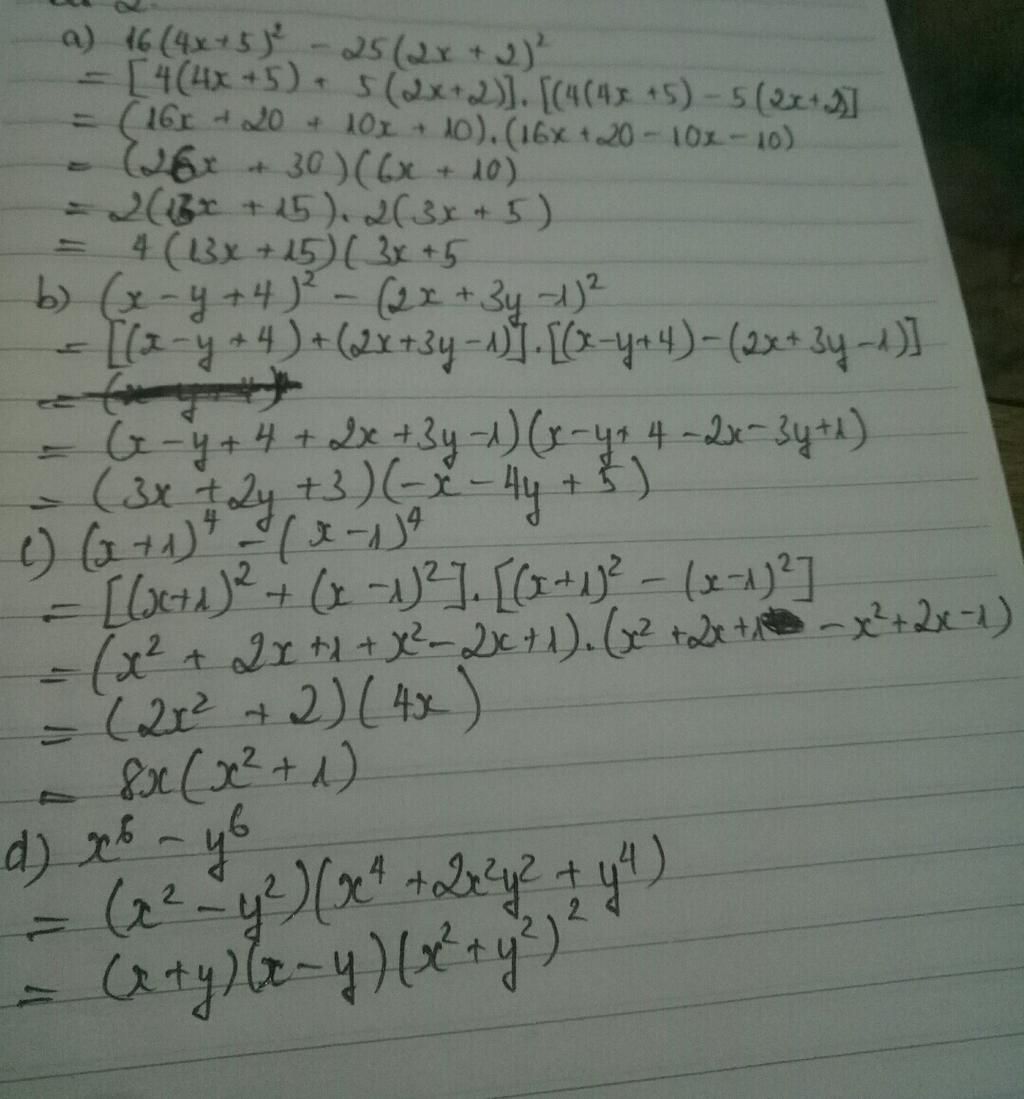 a) 16(4x+5)² - 25(2x+2)²
= [4(4x+5) + 5(2x+2)].[(4(4x+5) - 5(2x+2)]
= (16x + 20 + 10x + 10).(16x + 20 - 10x - 10)
= (26x + 30)(6x + 10)
= 2(13x + 15).2(3x + 5)
= 4(13x + 15)(3x+5
b) (x-y+4)² - (2x+3y-1)²
= [(x-y+4)+(2x+3y-1)].[(x-y+4)-(2x+3y-1)]
= (x-y+4+2x+3y-1)(x-y+4-2x-3y+1)
= (3x+2y+3)(-x-4y+5)
c) (x+1)⁴ - (x-1)⁴
= [(x+1)² + (x-1)²].[(x+1)² - (x-1)²]
= (x² + 2x+1+x²-2x+1).(x²+2x+1-x²+2x-1)
= (2x²+2)(4x)
= 8x(x²+1)
d) x⁶ - y⁶
= (x²-y²)(x⁴+2x²y²+y⁴)
= (x+y)(x-y)(x²+y²)²